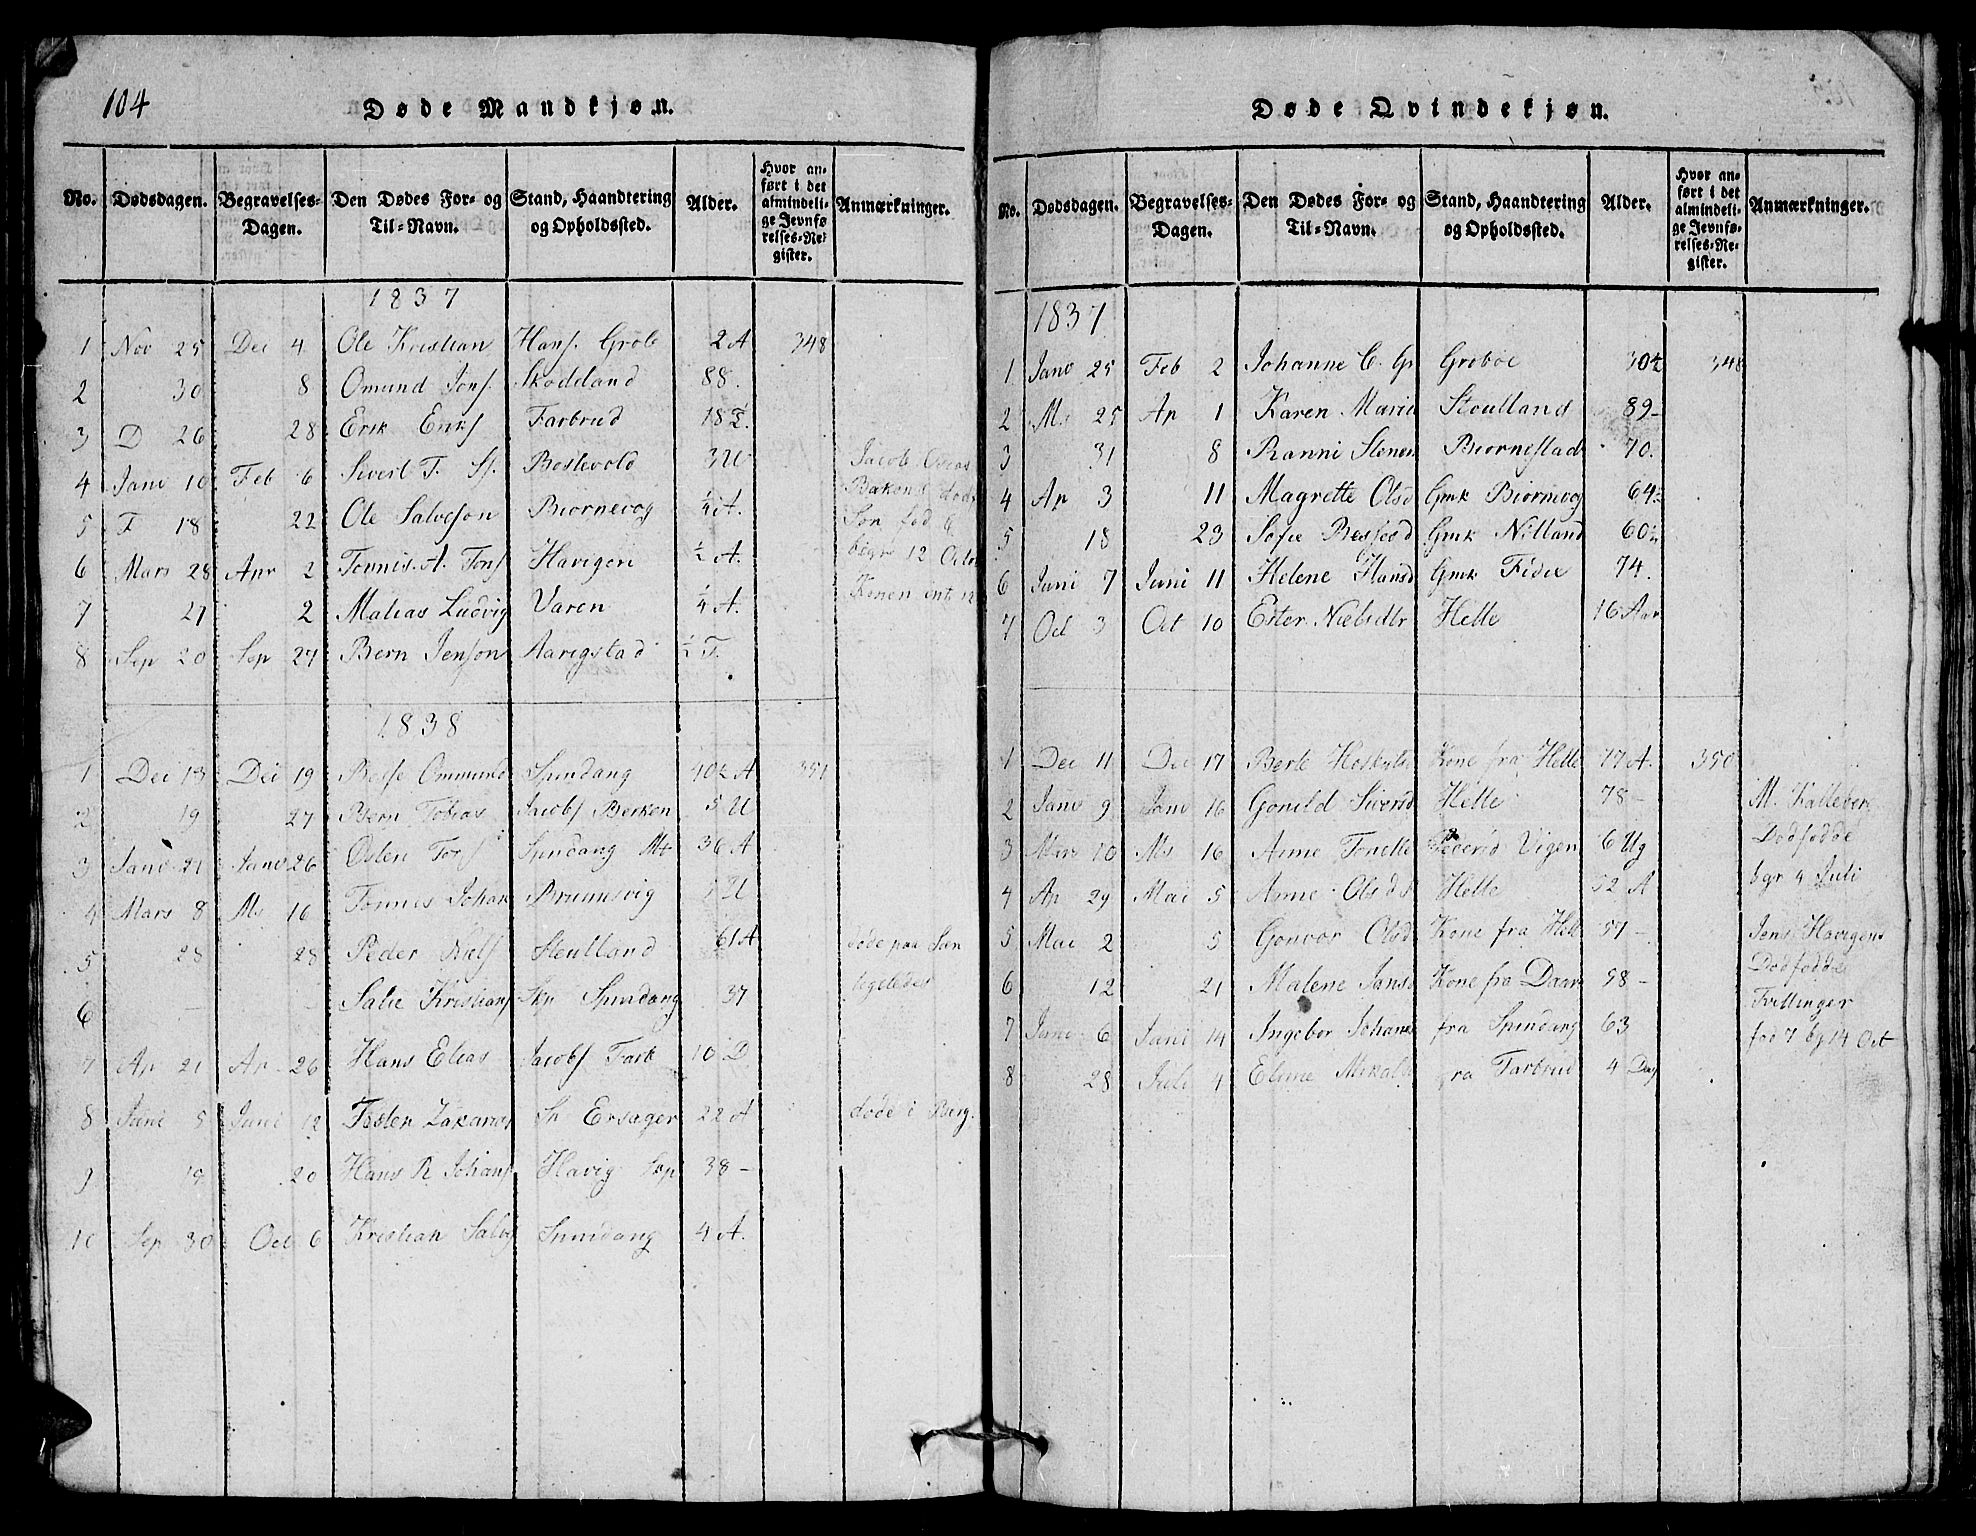 104
Døde Mandkjøn.
No. Dødsdagen. Begravelses-Dagen. Den Dødes For- og Til-Navn. Stand, Haandtering og Opholdssted. Alder. Hvor anført i det almindelige Jevnførelses-Register. Anmærkninger.
1837
1 Nov 25 Dec 4 Ole Kristian Hans. Grob 2 A 348
2 30 8 Omund Jons. Skodeland 88.
3 D 26 28 Erik Eriks Farbrud 18
4 Janv 10 Feb 6 Sivert T. Bostevold 3 U Jacob
5 F 18 22 Ole Salveson Biornevog ¼ A. Søn fød 6
6 Mars 28 Apr 2 Tonnis. A. Tons Havigen ½ A. begr 12 Octr
7 27 2 Matias Ludvig Varen ¼ A. Konen int 12
8 Sep 20 Sep 27 Bern Jenson Aarigstad ½ T.
1838
1 Dec 13 Dec 19 Omund Spindang 40½ A 351
2 19 27 Bern Tobias Jacobs Berken 5 U
3 Janv 21 Janv 26 Osten Tors Spindang 36 A
4 Mars 8 Ms 16 Tonnis Johan Brunnvig 1 U
5 28 28 Peder Niels Steulland 61 A døde paa Søn
6 - - Salve Kristians Skp Spindang 37 ligeledes
7 Ap 21 Ap 26 Hans Elias Jacobs Farb 10 D
8 Juni 5 Juni 12 Tosten Zakarias Ersager 22 A døde i Berg.
9 19 20 Hans R Johans Havig Skp 38 -
10 Sep 30 Oct 6 Kristian Salv Spindang 4 A.
Døde Qvindekjøn.
No. Dødsdagen. Begravelses-Dagen. Den Dødes For- og Til-Navn. Stand, Haandtering og Opholdssted. Alder. Hvor anført i det almindelige Jevnførelses-Register. Anmærkninger.
1837
1 Janv 25 Feb 2 Johanne C. Gr Grobøe 30½ 348
2 Ms 25 Ap 1 Karen Maria Stoulland 89-
3 31 8 Ranni Stenen Biornestad 70.
4 Ap 3 11 Magrette Olsd Gmk Biornevog 64
5 18 23 Sofie Gmk Nilland 60
6 Juni 7 Juni 11 Helene Hansd Gmk Fidie 74.
7 Oct 3 Oct 10 Ester Nielsdtr Helle 16 Aar
1 Dec 11 Dec 17 Berte Kone fra Helle 77 A. 350
2 Janv 9 Janv 16 Gonild Siversd Helle 78 - M. Kalleber
3 Mars 10 Ms 16 Anne Tonette Vigen 6 Ug Dødfødde
4 Ap 29 Mai 5 Anne Olsd Helle 52 A bgr 4 Juli
5 Mai 2 5 Gonvor Olsd Kone fra Hell 57 - Jens Havigens
6 12 21 Malene Jansd Kone fra Daar 58 - Dødfødde
Tvillinger
7 Juni 6 Juni 14 Ingebor Johanes fra Spindang 63 fød 7 bg 14 Oct
8 28 Juli 4 Eline Mikals fra Farbrud 4 Dag